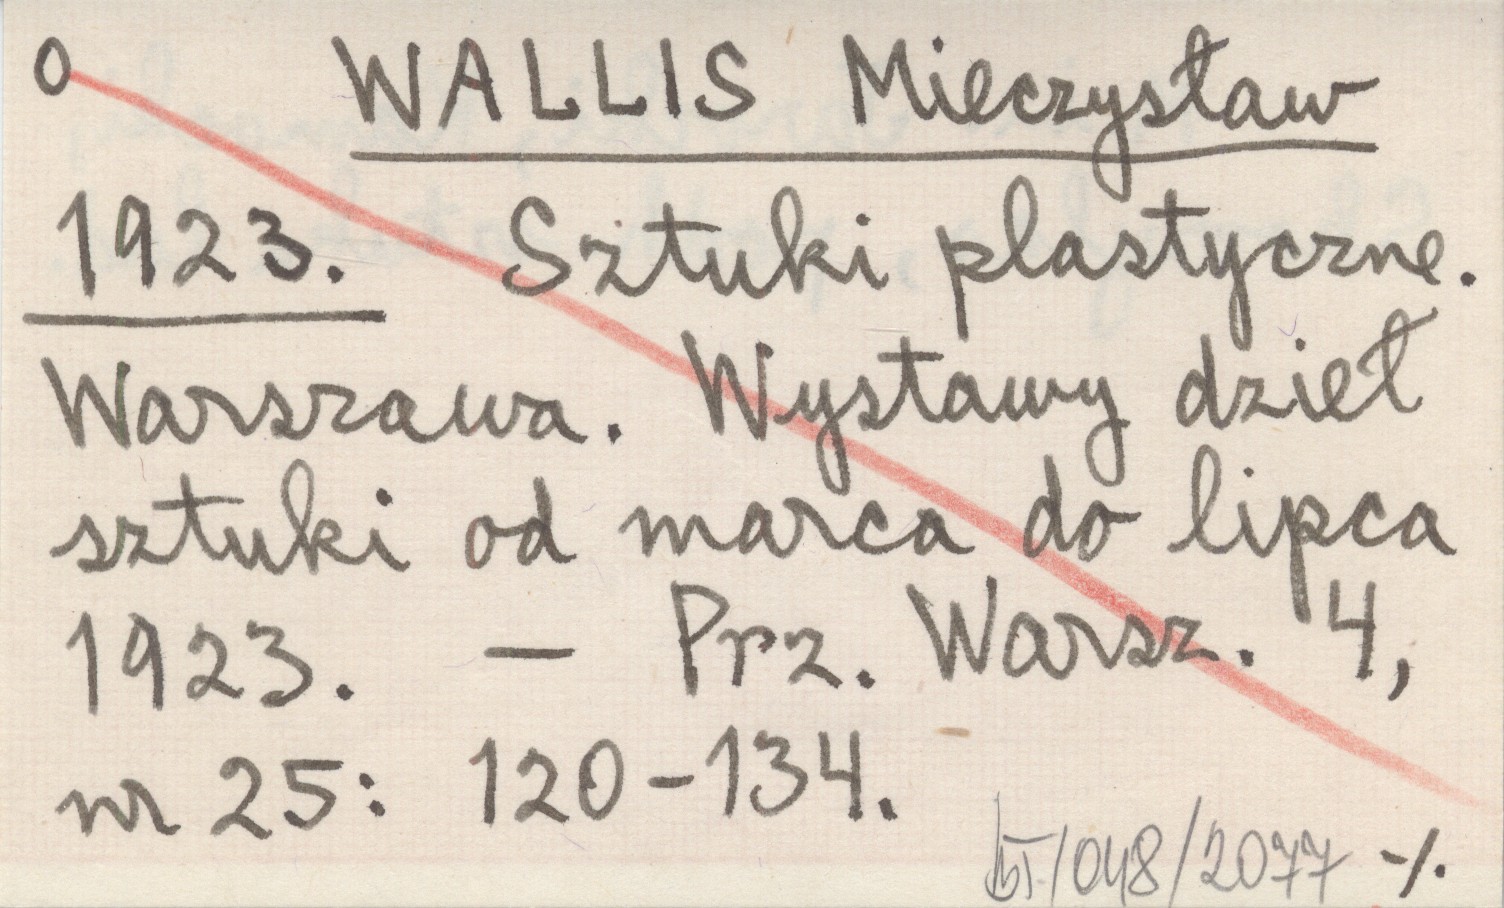 0 WALLIS Mieczysław
1923. Sztuki plastyczne.
Warszawa. Wystawy dzieł
sztuki od marca do lipca
1923. — Prz. Warsz. 4,
nr 25: 120-134.
/048/2077 -/.